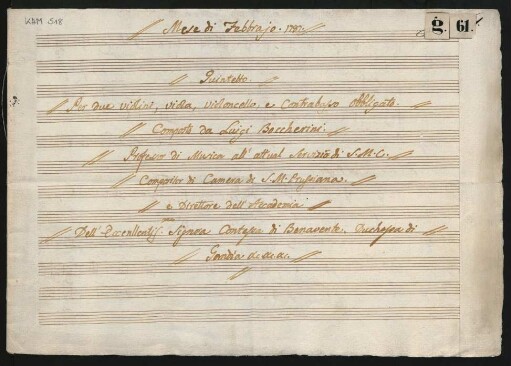 KHM 518
g. 61.
Mese di Febbrajo. 1787.
Quintetto.
Per due violini, viola, violoncello, e Contrabasso obbligato.
Composto da Luigi Boccherini.
Profesor di Musica all' attual Servizio di S. M. C.
Compositor di Camera di S. M. Prussiana.
e Direttore dell' Academia
Dell' Eccellentiss.ma Signora Contessa di Benavente, Duchessa di
Gandia &c. &c.